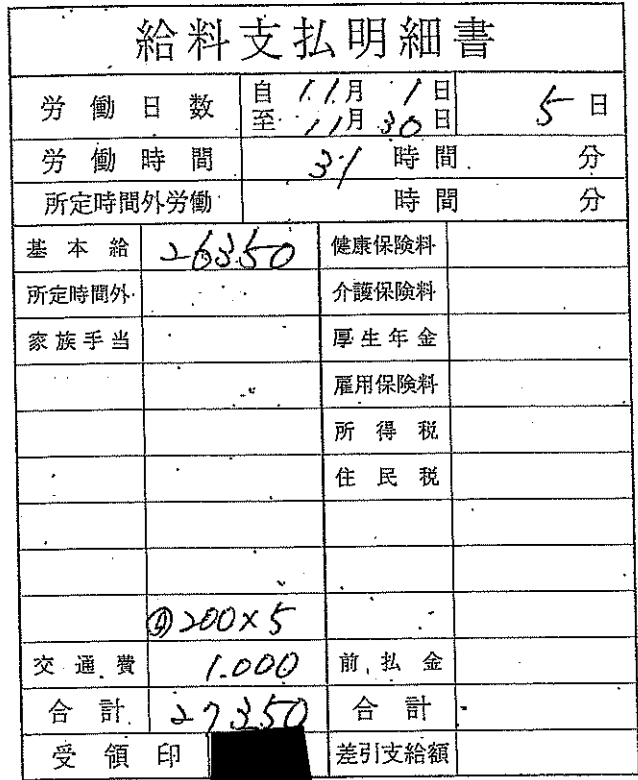 給料支払明細書
労働日数 自 11月 1日 至 11月 30日 5日
労働時間 31 時間 分
所定時間外労働 時間 分
基本給 26350 健康保険料
所定時間外 介護保険料
家族手当 厚生年金
雇用保険料
所得税
住民税
200×5
交通費 1.000 前払金
合計 27350 合計
受領印 差引支給額